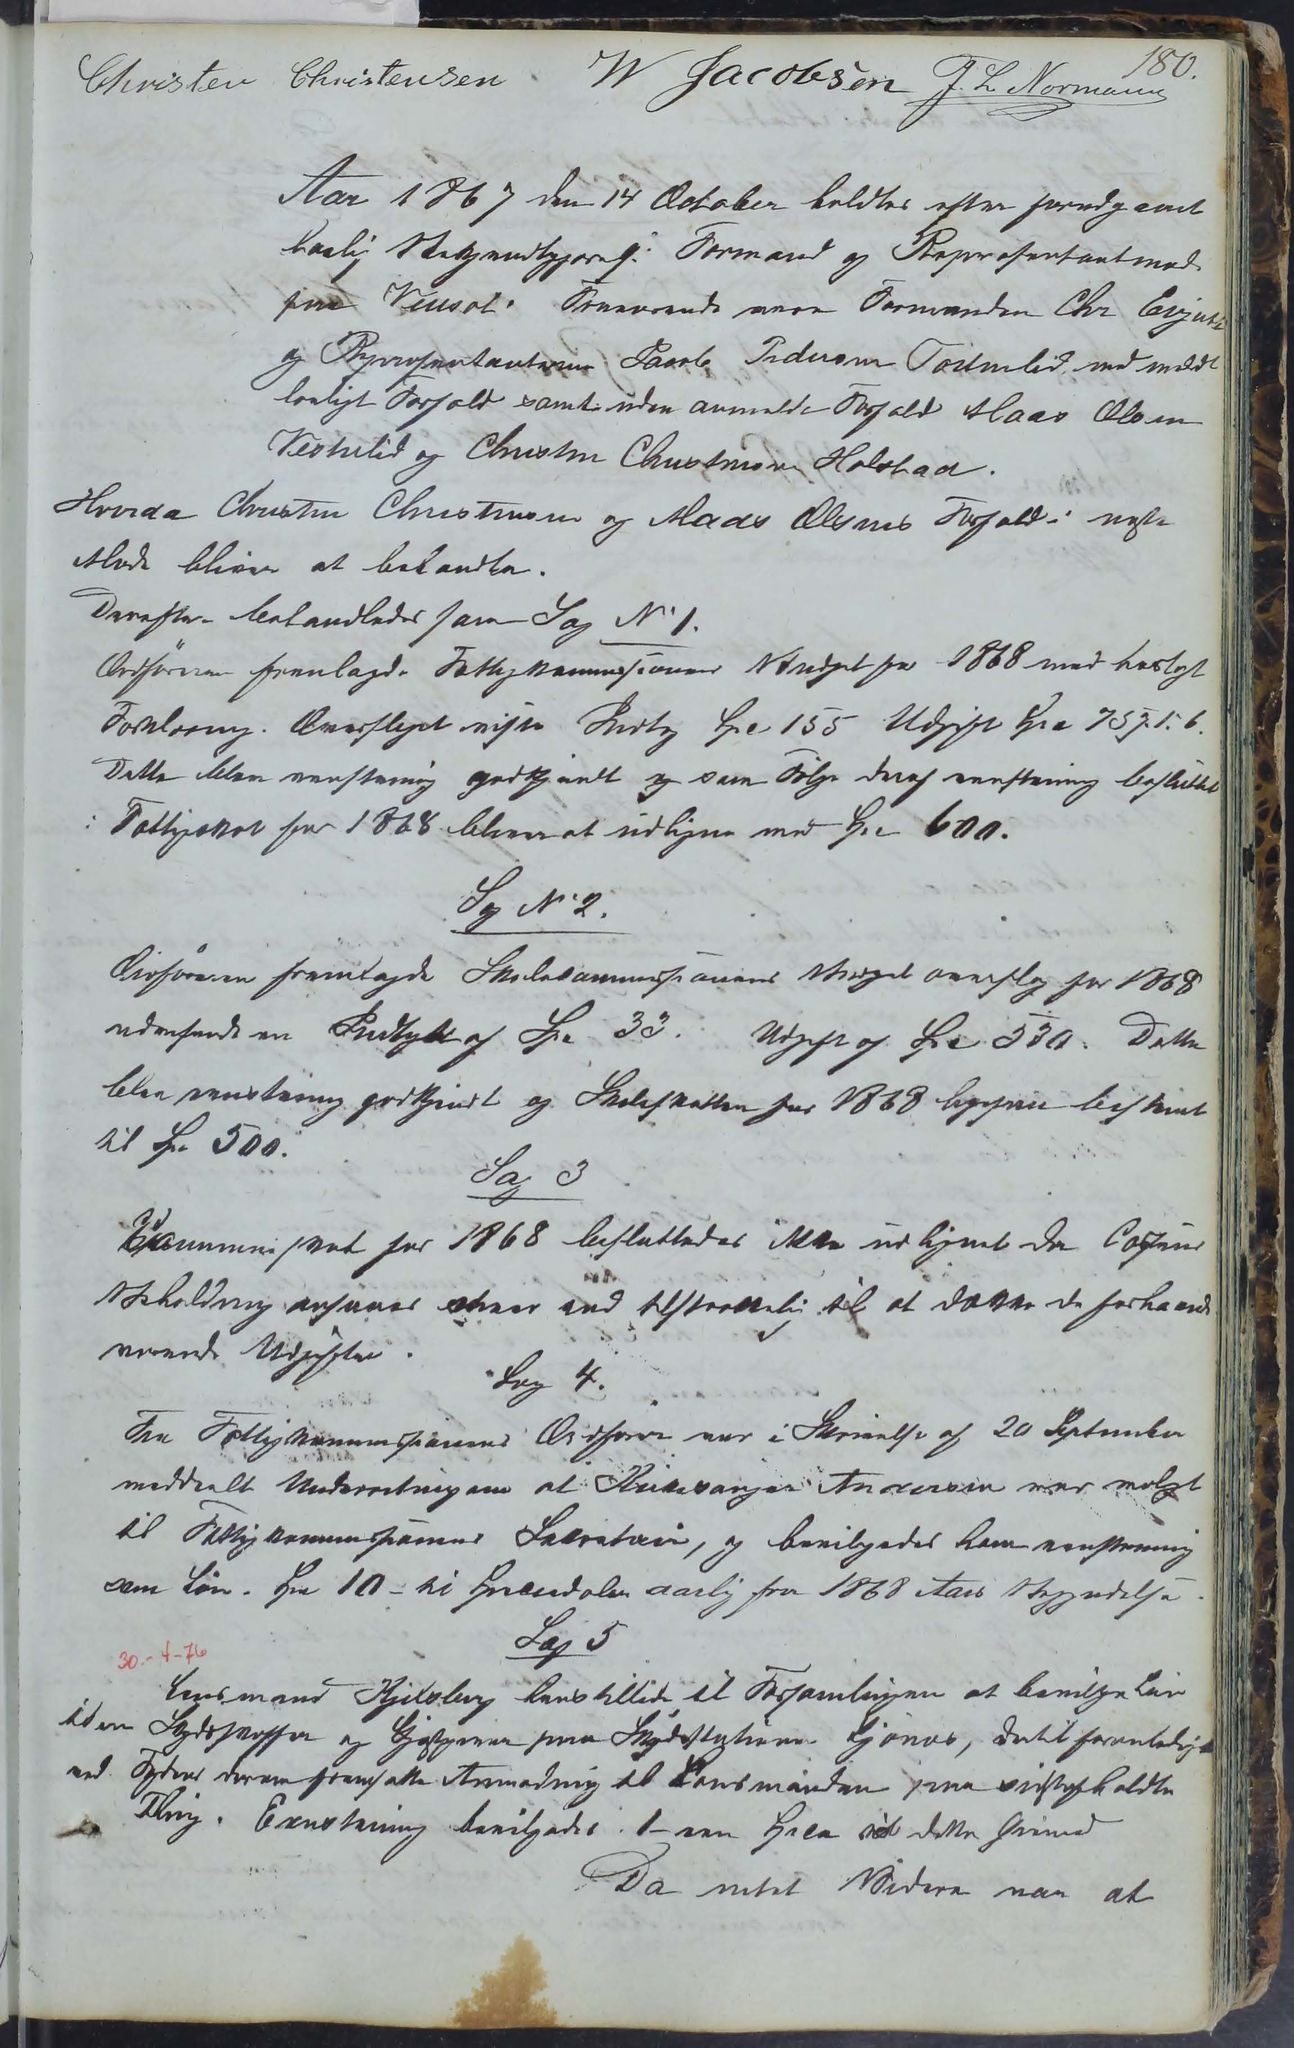 180.
Christen Christensen W Jacobsen J. L. Normann
Aar 1867 den 14 October holdtes efter forudgaaet
lovlig Bekjendtgjörelse Formand og Representantmøde
paa Vensot. Fraværende vare Formanden Chr Evjent
og Representanterne Jacob Pedersen Tostenlid med meldt
lovligt Forfald samt uden anmeldt Forfald Mads Olsen
Vestrelid og Christen Christensen Holstad.
Hvorda Christen Christensen og Mads Olsens Forfald i neste
Møde bliver at behandle.
Derefter behandledes som Sag No 1.
Ordføreren fremlagde Fattigkommissionens Budget for 1868 med
Forklaring. Overslaget viste Indtg Spe 155 Udgift Spe 757. 1. 6.
Dette blev eenstemig godkjendt og som Følge deraf eenstemig besluttet
: Fattigskat for 1868 bliver at udligne med Spe 600.
Sag No 2.
Ordføreren fremlagde Skolecommissionens Budget overslag for 1868
udvisende en Indtægt af Spe 33. Udgift af Spe 530. Dette
blev eenstemig godkjendt og Skoleskatten for 1868 bestemt
til Spe 500.
Sag 3
Communeskat for 1868 besluttedes ikke udlignet da Cassens
Beholdning ansaaes mer end tilstrækkelig til at dække de forhaand
værende Udgifter.
Sag 4.
Fra Fattigkommissionens Ordfører var i Skrivelse af 20 September
meddeelt Underretning om at Kirkesanger Andersen var valgt
til Fattigkommissionens Secretair, og bevilgedes ham eenstemig
som Løn Spe 10 - ti Speciedaler aarlig fra 1868 Aars Begyndelse.
Sag 5
30.-4-76
Lensmand Kjelsberg henstillede til Forsamlingen at bevilge Løn
til en Skydsskaffer paa Skydsstationen Gjönos, dertil foranlediget
ved derom fremsatte Anmodning til Lensmanden paa sidstafholdte
Thing. Eenstemig bevilgedes 1 - een Spece til dette
Da intet Videre var at